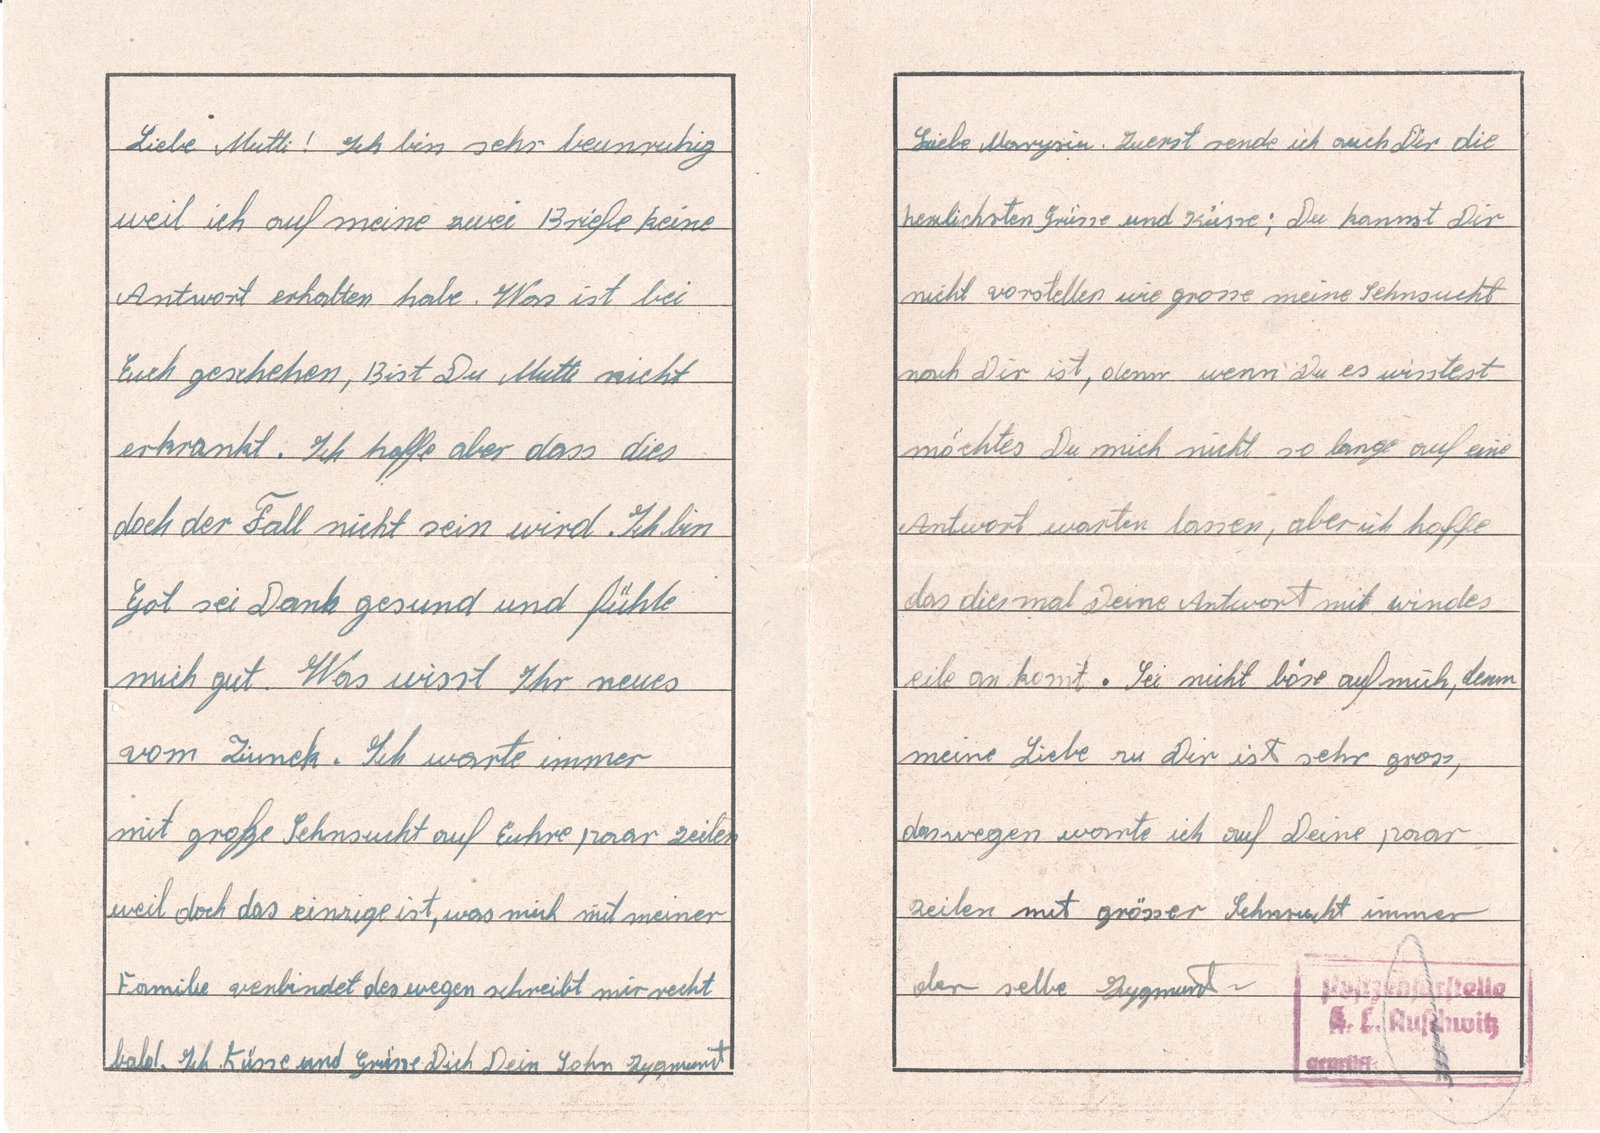 Liebe Mutti! Ich bin sehr beunruhig
weil ich auf meine zwei Briefe keine
Antwort erhalten habe. Was ist bei
Euch geschehen, Bist Du Mutti nicht
erkrankt. Ich hoffe aber dass dies
doch der Fall nicht sein wird. Ich bin
Got sei Dank gesund und fühle
mich gut. Was wisst Ihr neues
vom Ziunek. Ich warte immer
mit große Sehnsucht auf Euhre paar zeilen
weil doch das einzige ist, was mich mit meiner
Familie verbindet deswegen schreibt mir recht
bald. Ich Küsse und Grüsse Dich Dein Sohn Zygmunt
Liebe Marysiu. Zuerst sende ich auch Dir die
herzlichsten Grüsse und Küsse; Du kannst Dir
nicht vorstellen wie grosse meine Sehnsucht
nach Dir ist, denn wenn Du es wisstest
möchtes Du mich nicht so lange auf eine
Antwort warten lassen, aber ich hoffe
das diesmal Deine Antwort mit windes
eile an komt. Sei nicht böse auf mich, denn
meine Liebe zu Dir ist sehr gross,
daswegen warte ich auf Deine paar
zeilen mit grösser Sehnsucht immer
der selbe Zygmunt
Postzensurstelle
K. L. Auschwitz
GEPRÜFT: